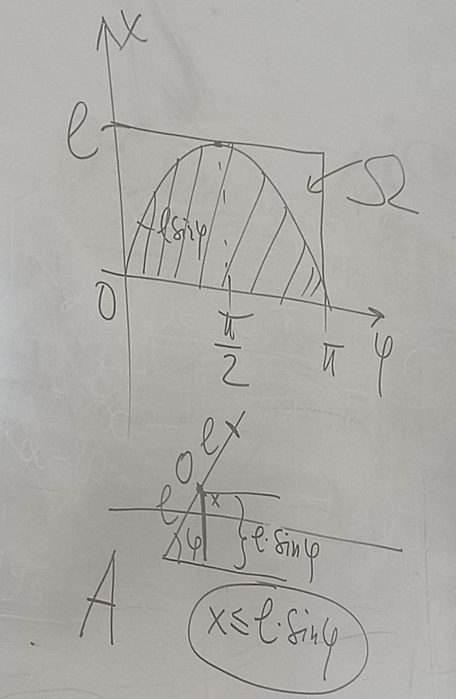 x
l
Ω
A l sinφ
0
π/2
π
φ
l x
0
l
x
φ
l·sinφ
A
x ≤ l·sinφ